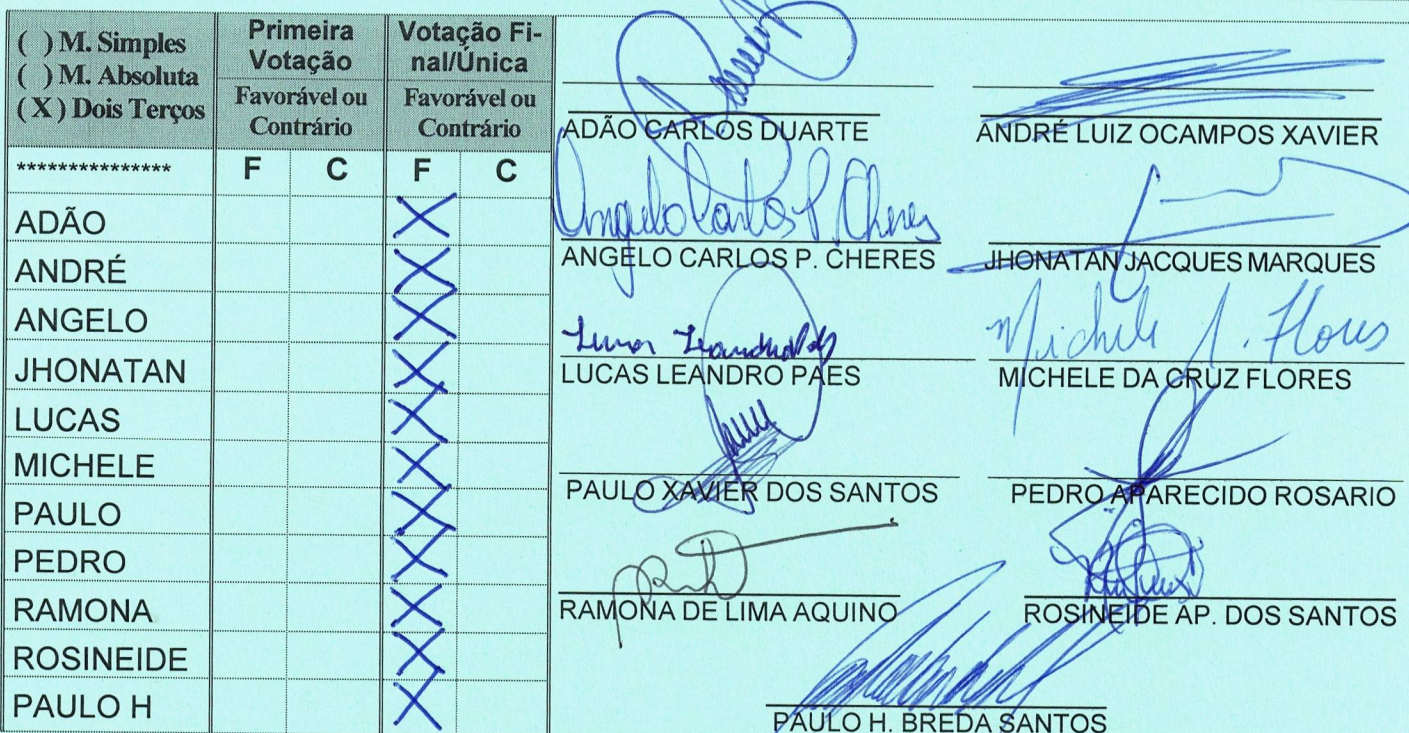 ( ) M. Simples
( ) M. Absoluta
( X ) Dois Terços
Primeira
Votação
Favorável ou
Contrário
Votação Fi-
nal/Única
Favorável ou
Contrário
*************** F C F C
ADÃO X
ANDRÉ X
ANGELO X
JHONATAN X
LUCAS X
MICHELE X
PAULO X
PEDRO X
RAMONA X
ROSINEIDE X
PAULO H X
ADÃO CARLOS DUARTE
ANDRÉ LUIZ OCAMPOS XAVIER
Angelo Carlos P. Cheres
ANGELO CARLOS P. CHERES
JHONATAN JACQUES MARQUES
LUCAS LEANDRO PAES
Michele Flores
MICHELE DA CRUZ FLORES
PAULO XAVIER DOS SANTOS
PEDRO APARECIDO ROSARIO
RAMONA DE LIMA AQUINO
ROSINEIDE AP. DOS SANTOS
PAULO H. BREDA SANTOS